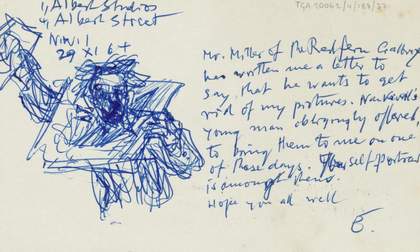 TGA 20062/4/188/37
4 Albert Studios
Albert Street
NW1
29 XI 64
Mr. Miller of the Redfern Gallery
has written me a letter to
say that he wants to get
rid of my pictures.
young man obligingly offered,
to bring them to me on one
of these days. self portrait
is amongst them.
Hope you all well